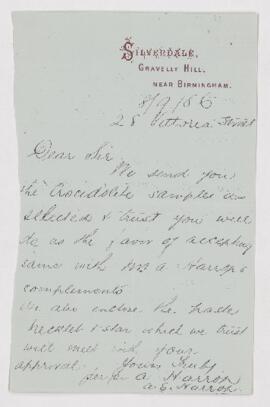 SILVERDALE,
GRAVELLY HILL,
NEAR BIRMINGHAM.
8/9/86
28 Victoria Street
Dear Sir
We send you
the Crocidolite samples as
selected & trust you will
do us the favor of accepting
same with A Harrop's
complements
We also enclose the
& star which we trust
will meet with your
approval. Yours truly
A Harrop